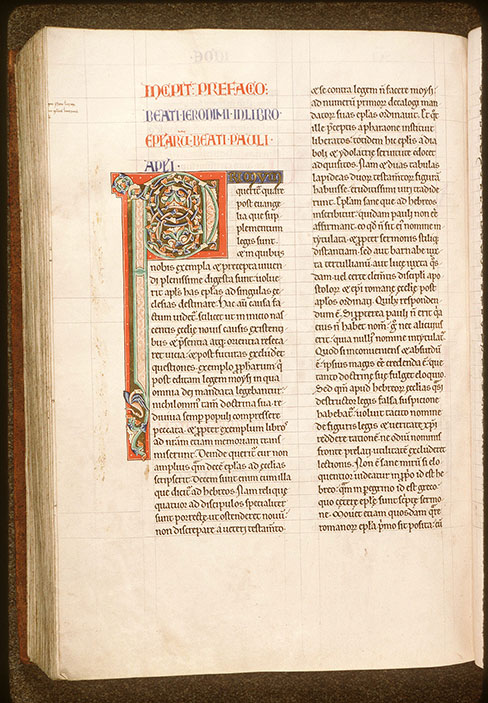 INCIPIT: PREFACIO:
BEATI·IERONIMI·IN LIBRO·
EPLARU·BEATI·PAULI·
APLI·
PRIMVM
querit̃ quare
post euange
lia que sup
plementum
legis sunt·
⁊ in quibus
nobis exempla ⁊ precepta uiuen
di plenissime digesta sunt: uolue
rit apls has eplas ad singulas ec
clesias destinare. Hac aũ causa fa
ctum uidet̃· scilicet ut in inicio nas
centis ecclie nouis causis existenti
bus ⁊ p̃sentia atq; orientia reseca
ret uicia· ⁊ post futuras excluderet
questiones· exemplo ꝓphetarum q̃
post editam legem moysi in qua
omnia dei mandata legebantur·
nichilomin' tam̃ doctrina sua re
diuiua semp̃ populi compressere
peccata· ⁊ ꝓpter exemplum libro'
ad nr̃am etiam memoriam trans
miserunt. Deinde querit̃ cur non
amplius quã decẽ eplas ad ecclias
scripserit. Decem sunt enim cum illa
que dicit̃ ad hebreos. Nam relique
quatuor ad discipulos specialiter
sunt porrecte: ut ostenderet nouũ·
non discrepare a ueteri testam̃to·
⁊ se contra legem ñ facere moysi:
ad numerũ primor̃ decalogi man
dator̃ suas eplas ordinauit. Et q̃t
ille p̃ceptis a pharaone instituit
liberatos: totidem hic eplis a dia
boli ⁊ ydolatrie seruitute edocet
adquisitos. Nam ⁊ duas tabulas
lapideas duor̃ testam̃tor̃ figurã
habuisse: eruditissimi uiri tradide
runt. Eplam sane que ad hebreos
inscribitur· quidam pauli nõ ee
affirmant· eo qd̃ ñ sit ei' nomine in
tytulata· ⁊ ꝓpter sermonis stiliq;
distantiam· sed aut barnabe iux
ta tertullianũ· aut luce iuxta q̃s
dam· uel certe clem̃tis discipli apo
stolor̃ ⁊ epi romane ecclie post
aplos ordinati. Quib; responden
dum ẽ. Si ꝓpterea pauli ñ erit q̃a
eius ñ habet nom̃: g̃ nec alicuius
erit· quia null' nomine intytulat̃.
Quod si inconueniens ⁊ absurdũ
ẽ: ipsius magis eẽ credenda ẽ que
tanto doctrine sue fulget eloquio.
Sed qm̃ apud hebreor̃ ecclias q̃si
destructor legis falsa suspicione
habebat̃: uoluit tacito nomine
de figuris legis ⁊ ueritate xp̃i
reddere rationẽ· ne odiũ nominis
fronte prelati utilitatẽ excluderet
lectionis. Non ẽ sane mirũ si elo
quentior uideatur in p̃p̃o id est he
breo· q̃m in peregrino id est greco·
quo cetere eple sunt scripte sermo
ne. Mouet etiam quosdam q̃re
romanor̃ epla p̃mo sit posita· cũ